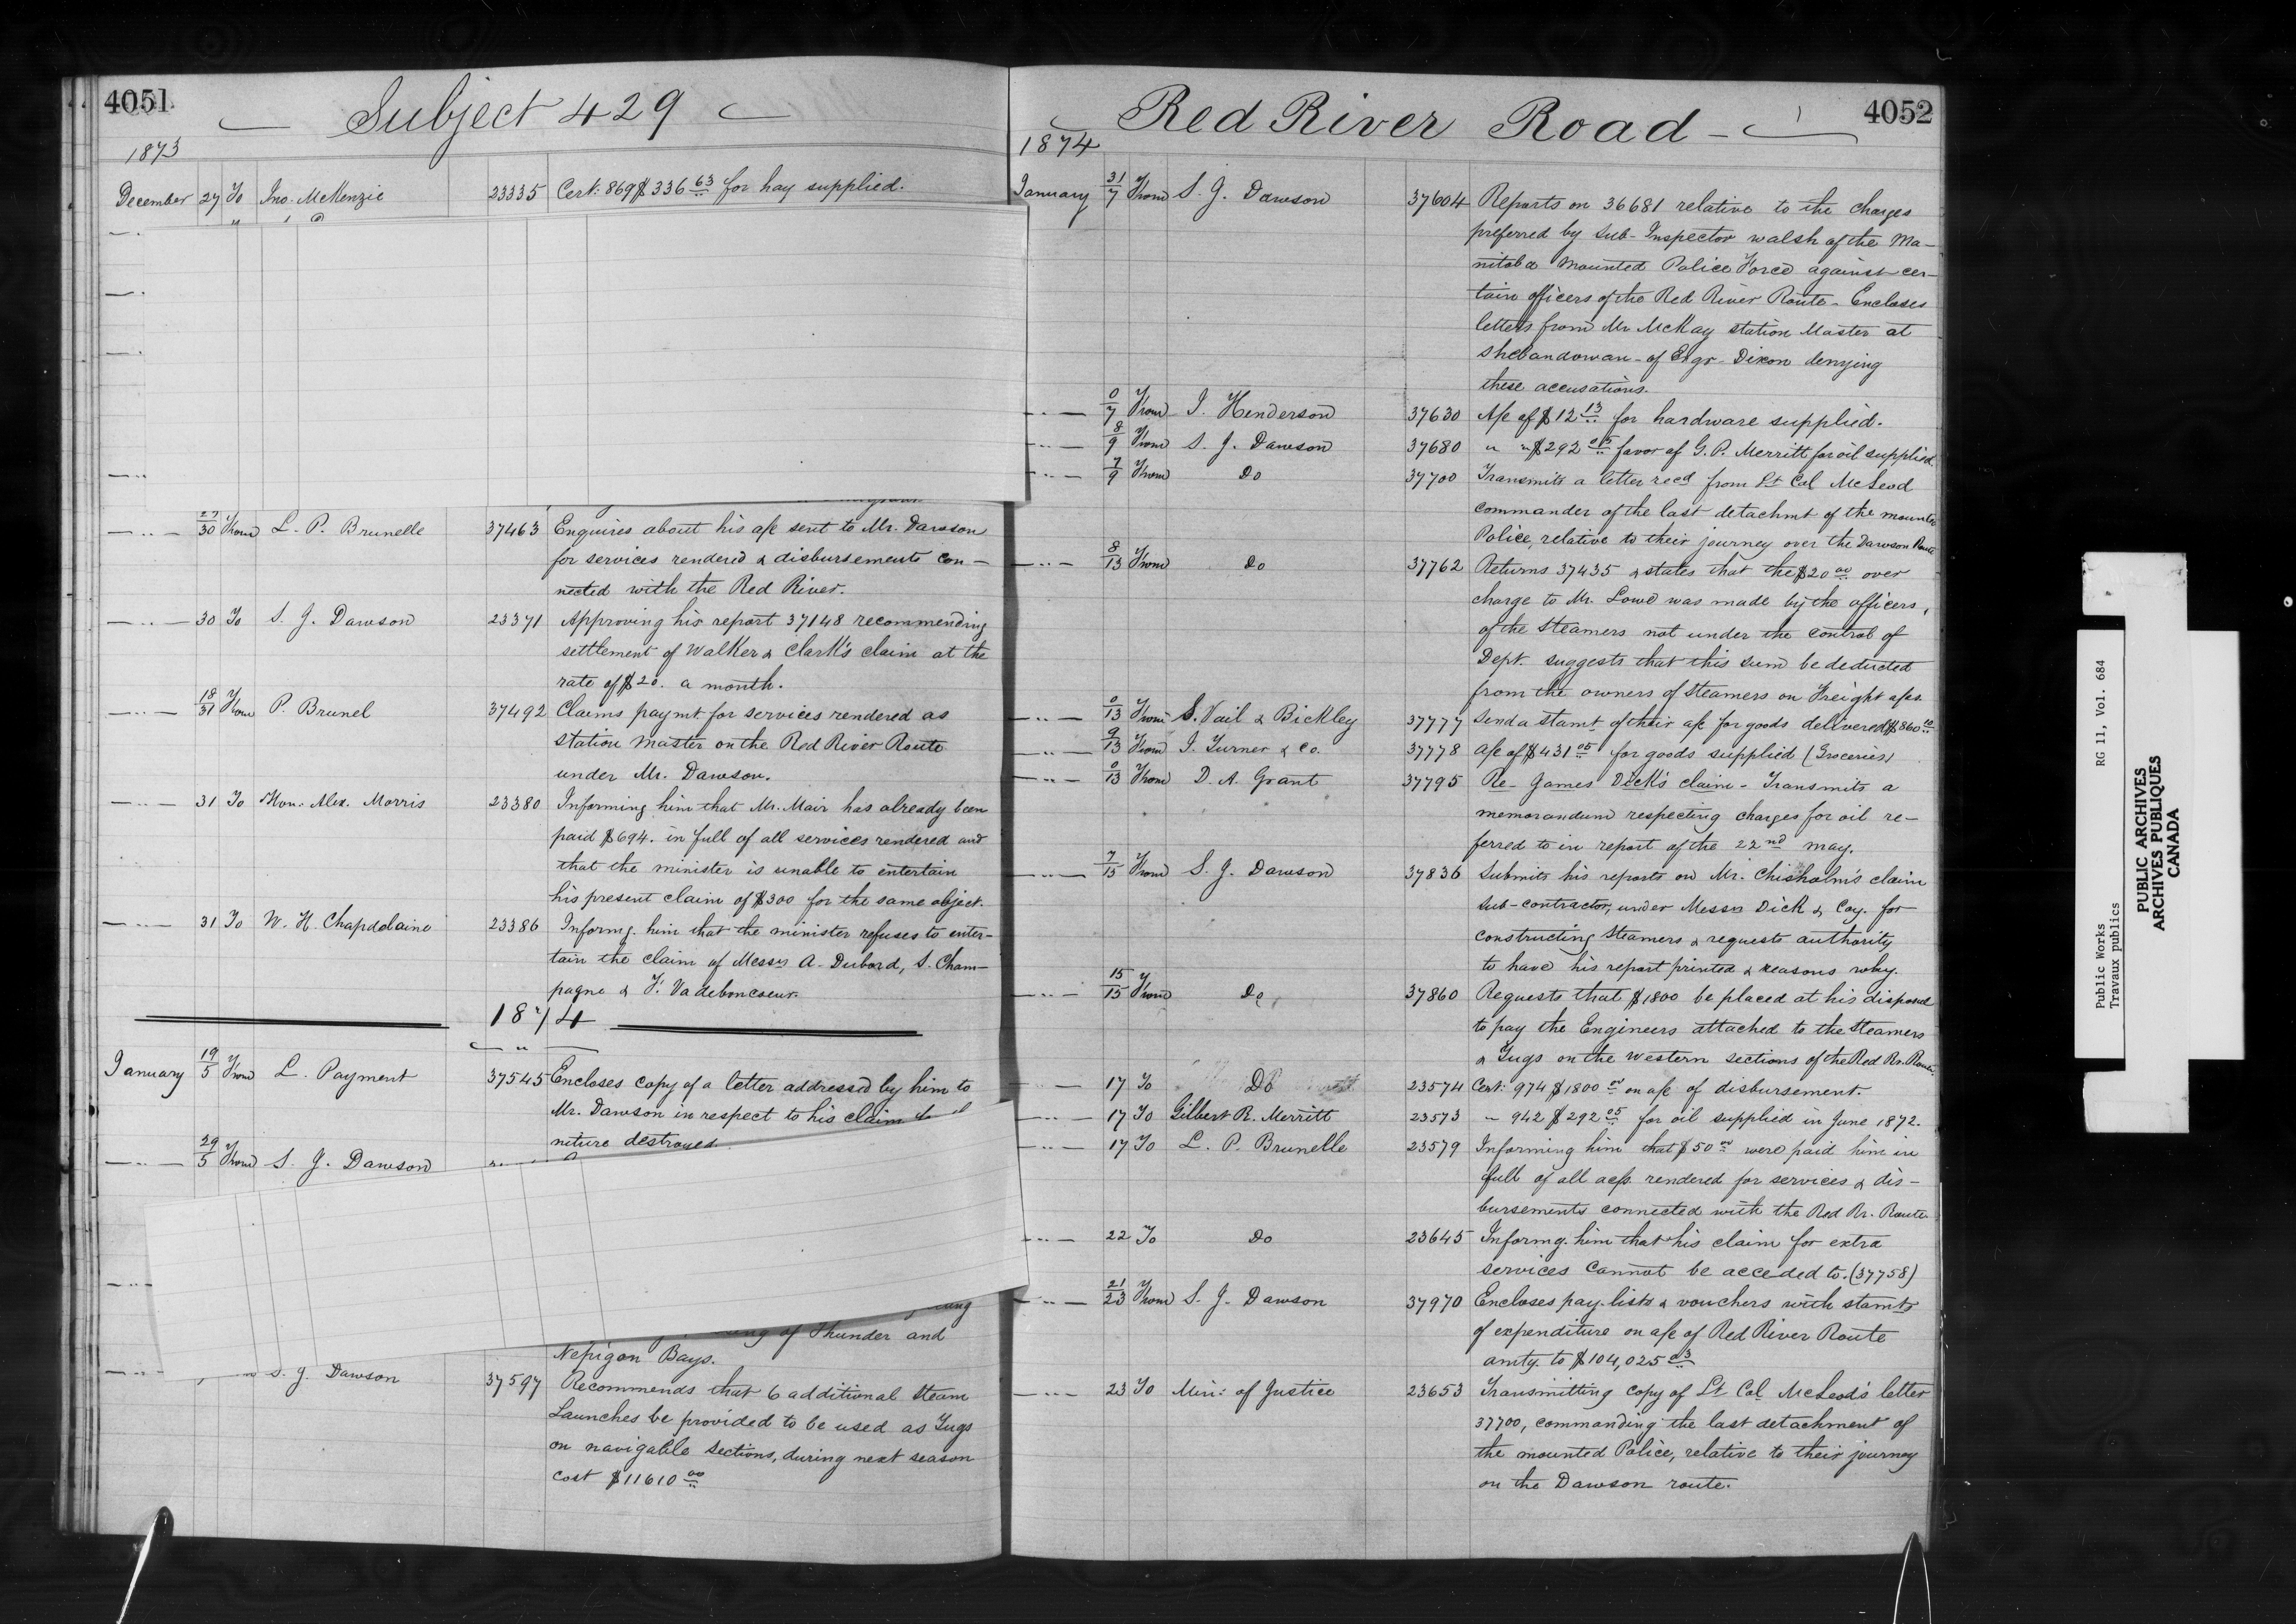 4051
Subject 429
1873
December 27 To Jno. McKenzie 23335 Cert: 869 $336 63 for hay supplied.
27/30 From L. P. Brunelle 37463 Enquires about his a/c sent to Mr. Dawson
for services rendered & disbursements con-
nected with the Red River.
30 To S. J. Dawson 23371 Approving his report 37148 recommending
settlement of Walker & Clark's claim at the
rate of $20. a month.
18/31 From P. Brunel 37492 Claims paymt. for services rendered as
station master on the Red River Route
under Mr. Dawson.
31 To Hon: Alex. Morris 23380 Informing him that Mr. Mair has already been
paid $694. in full of all services rendered and
that the minister is unable to entertain
his present claim of $300 for the same object.
31 To W. H. Chapdelaine 23386 Informg. him that the minister refuses to enter-
tain the claim of Messrs A. Dubord, S. Cham-
pagne & F. Vadeboncoeur.
1874
January 19/5 From L. Payment 37545 Encloses copy of a letter addressed by him to
Mr. Dawson in respect to his claim
niture destroyed
29/5 From S. J. Dawson
of Thunder and
Nepigon Bays.
S. J. Dawson 37597 Recommends that 6 additional Steam
Launches be provided to be used as Tugs
on navigable sections, during next season
cost $11610 00
4052
Red River Road
1874
January 31/7 From S. J. Dawson 37604 Reports on 36681 relative to the charges
preferred by Sub-Inspector Walsh of the Ma-
nitoba Mounted Police Force against cer-
tain officers of the Red River Route - Encloses
letters from Mr. McKay station Master at
Shebandowan - of Engr- Dixon denying
these accusations.
0/7 From J. Henderson 37630 A/c of $12 13 for hardware supplied.
8/9 From S. J. Dawson 37680 " " $292 05 favor of G. P. Merritt for oil supplied
7/9 From Do 37700 Transmits a letter recd from Lt Col McLeod
commander of the last detachmt of the mounted
Police, relative to their journey over the Dawson Route
8/13 From Do 37762 Returns 37435 & states that the $20 00 over
charge to Mr. Lowe was made by the officers,
of the Steamers not under the control of
Dept. suggests that this sum be deducted
from the owners of Steamers on Freight a/cs.
0/13 From S. Vail & Bickley 37777 Send a stamt of their a/c for goods delivered $860 10
9/13 From J. Turner & Co. 37778 A/c of $431 05 for goods supplied (Groceries)
0/13 From D. A. Grant 37795 Re- James Dick's claim - Transmits a
memorandum respecting charges for oil re-
ferred to in report of the 22nd may.
7/15 From S. J. Dawson 37836 Submits his reports on Mr. Chisholm's claim
sub-contractor, under Messrs Dick & Coy. for
constructing Steamers & requests authority
to have his report printed & reasons why.
15/15 From Do 37860 Requests that $1800 be placed at his disposal
to pay the Engineers attached to the Steamers
& Tugs on the Western sections of the Red Rr. Route.
17 To Do 23574 Cert: 974 $1800 00 on a/c of disbursement.
17 To Gilbert R. Merritt 23573 " 942 $292 05 for oil supplied in June 1872.
17 To L. P. Brunelle 23579 Informing him that $50 00 were paid him in
full of all accts. rendered for services & dis-
bursements connected with the Red Rr. Route
22 To Do 23645 Informg. him that his claim for extra
services cannot be acceded to. (37758)
21/23 From S. J. Dawson 37970 Encloses pay-lists & vouchers with stamts
of expenditure on a/c of Red River Route
amtg. to $104,025 03
23 To Min: of Justice 23653 Transmitting copy of Lt Col McLeod's letter
37700, commanding the last detachment of
the mounted Police, relative to their journey
on the Dawson route.
Public Works RG 11, Vol. 684
Travaux publics
PUBLIC ARCHIVES
ARCHIVES PUBLIQUES
CANADA